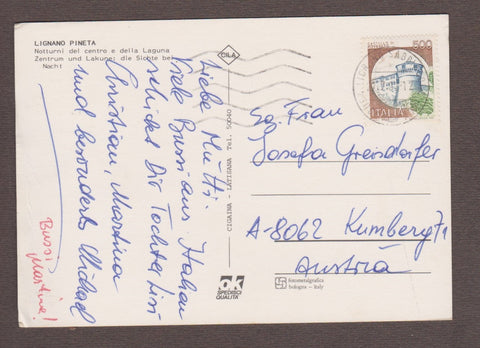 LIGNANO PINETA
Notturni del centro e della Laguna
Zentrum und Lakune: die Sichte bei
Nacht
CILA
Liebe Mutti!
Viele Bussi aus Italien
schickt Dir Tochter Lisi
Christian, Martina
und besonders Michael
Bussi
Martina!
CICAINA - LATISANA Tel. 50040
OK
SPEDISCI
QUALITÀ
500
ITALIA
So. Frau
Josefa Greisdorfer
A-8062 Kumberg 71
Austria
fotometalgrafica
bologna - italy